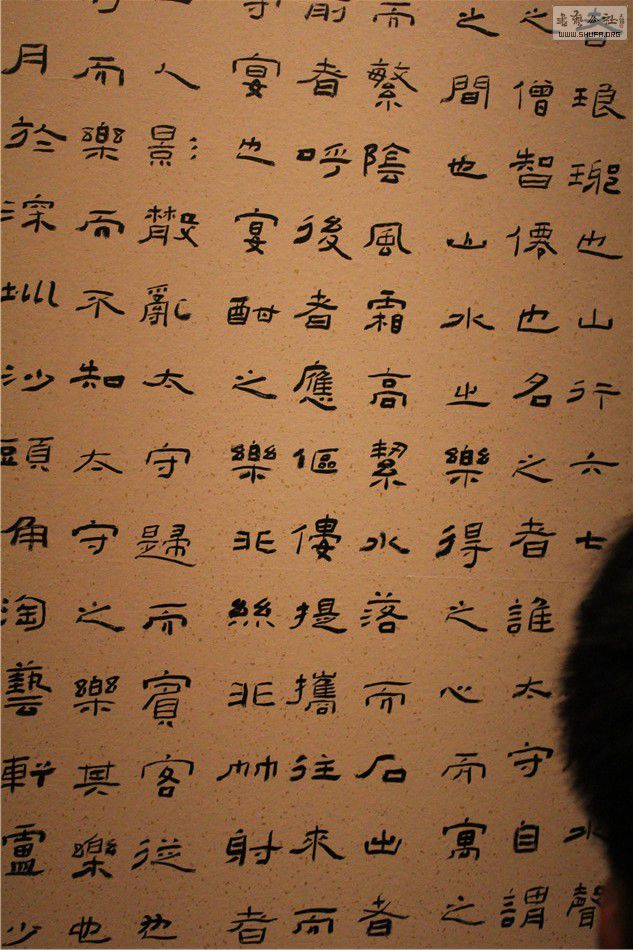 琅瑘也山行六七水聲
之僧智僊也名之者誰太守自謂
之間也山水之樂得之心而寓之
而繁陰風霜高絜水落而石出者
前者呼後者應傴僂提攜往來而
守宴也宴酣之樂非絲非竹射者
人影散亂太守歸而賓客從也
而樂而不知太守之樂其樂也
月於深圳沙頭角淘藝軒盧少
WWW.SHUFA.ORG